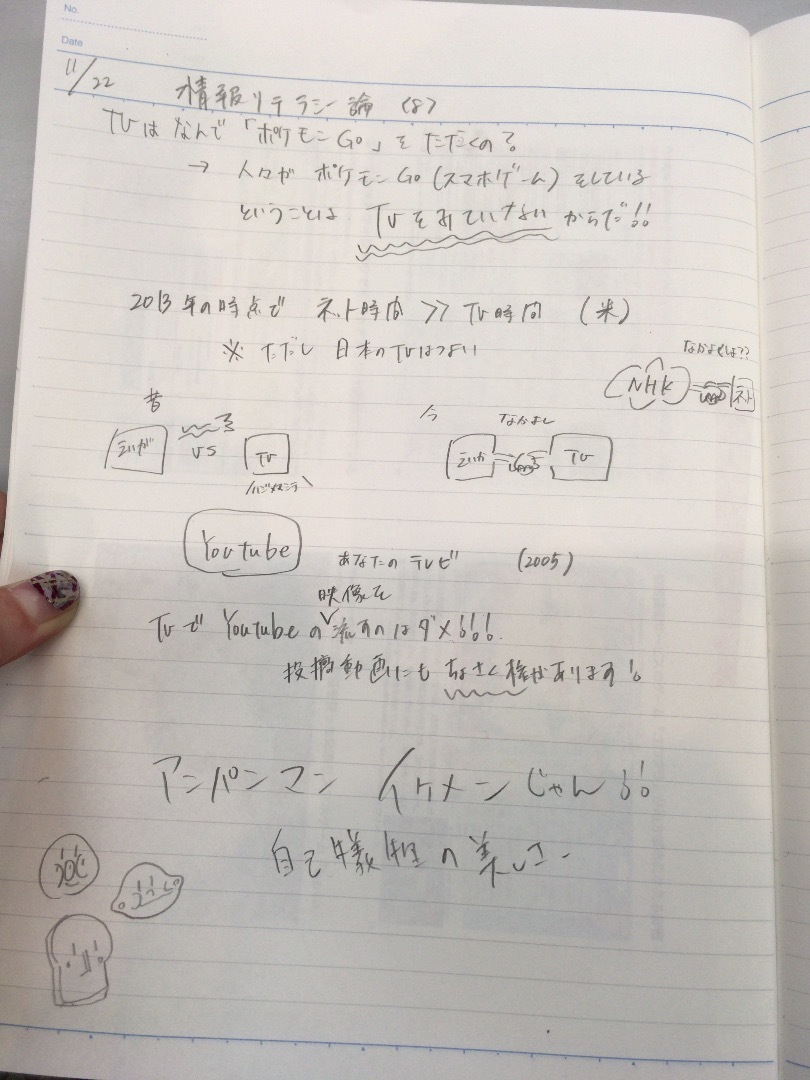 No.
Date
11/22 情報リテラシー論 (8)
TVはなんで「ポケモンGo」をたたくの?
→ 人々が ポケモンGo(スマホゲーム)をしている
ということは TVをみていない からだ!!
2013年の時点で ネット時間 >> TV時間 (米)
※ ただし 日本のTVはつよい
なかよくしよ??
NHK ネト
昔 今 なかよし
えいが VS TV
えいが TV
Youtube あなたのテレビ (2005)
映像を
TVで Youtubeの流すのはダメ!!!
投稿動画にも ちょさく権があります!
アンパンマン イケメンじゃん!!
自己犠牲の美しさー